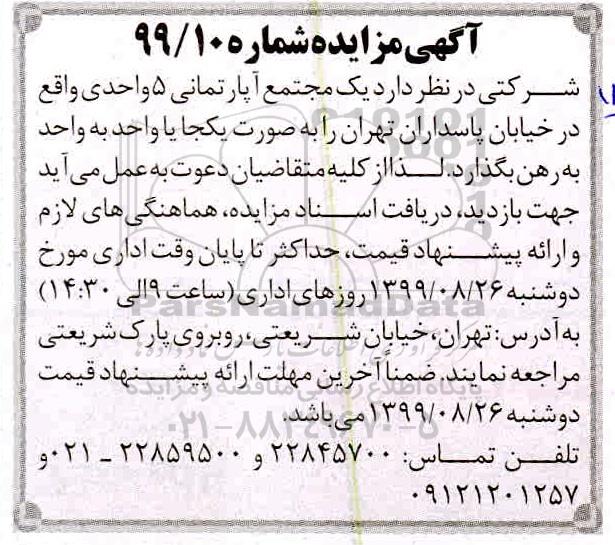 آگهی مزایده شماره ۹۹/۱۰
شرکتی در نظر دارد یک مجتمع آپارتمانی ۵ واحدی واقع
در خیابان پاسداران تهران را به صورت یکجا یا واحد به واحد
به رهن بگذارد. لذا از کلیه متقاضیان دعوت به عمل می آید
جهت بازدید، دریافت اسناد مزایده، هماهنگی های لازم
و ارائه پیشنهاد قیمت، حداکثر تا پایان وقت اداری مورخ
دوشنبه ۱۳۹۹/۰۸/۲۶ روزهای اداری (ساعت ۹ الی ۱۴:۳۰)
به آدرس: تهران، خیابان شریعتی، روبروی پارک شریعتی
مراجعه نمایند. ضمناً آخرین مهلت ارائه پیشنهاد قیمت
دوشنبه ۱۳۹۹/۰۸/۲۶ می باشد.
تلفن تماس: ۲۲۸۴۵۷۰۰ و ۲۲۸۵۹۵۰۰ ـ ۰۲۱ و
۰۹۱۲۱۲۰۱۲۵۷
ParsNamadData
پایگاه اطلاع رسانی مناقصه و مزایده
۰۲۱-۸۸۳۴۹۶۷۰-۵